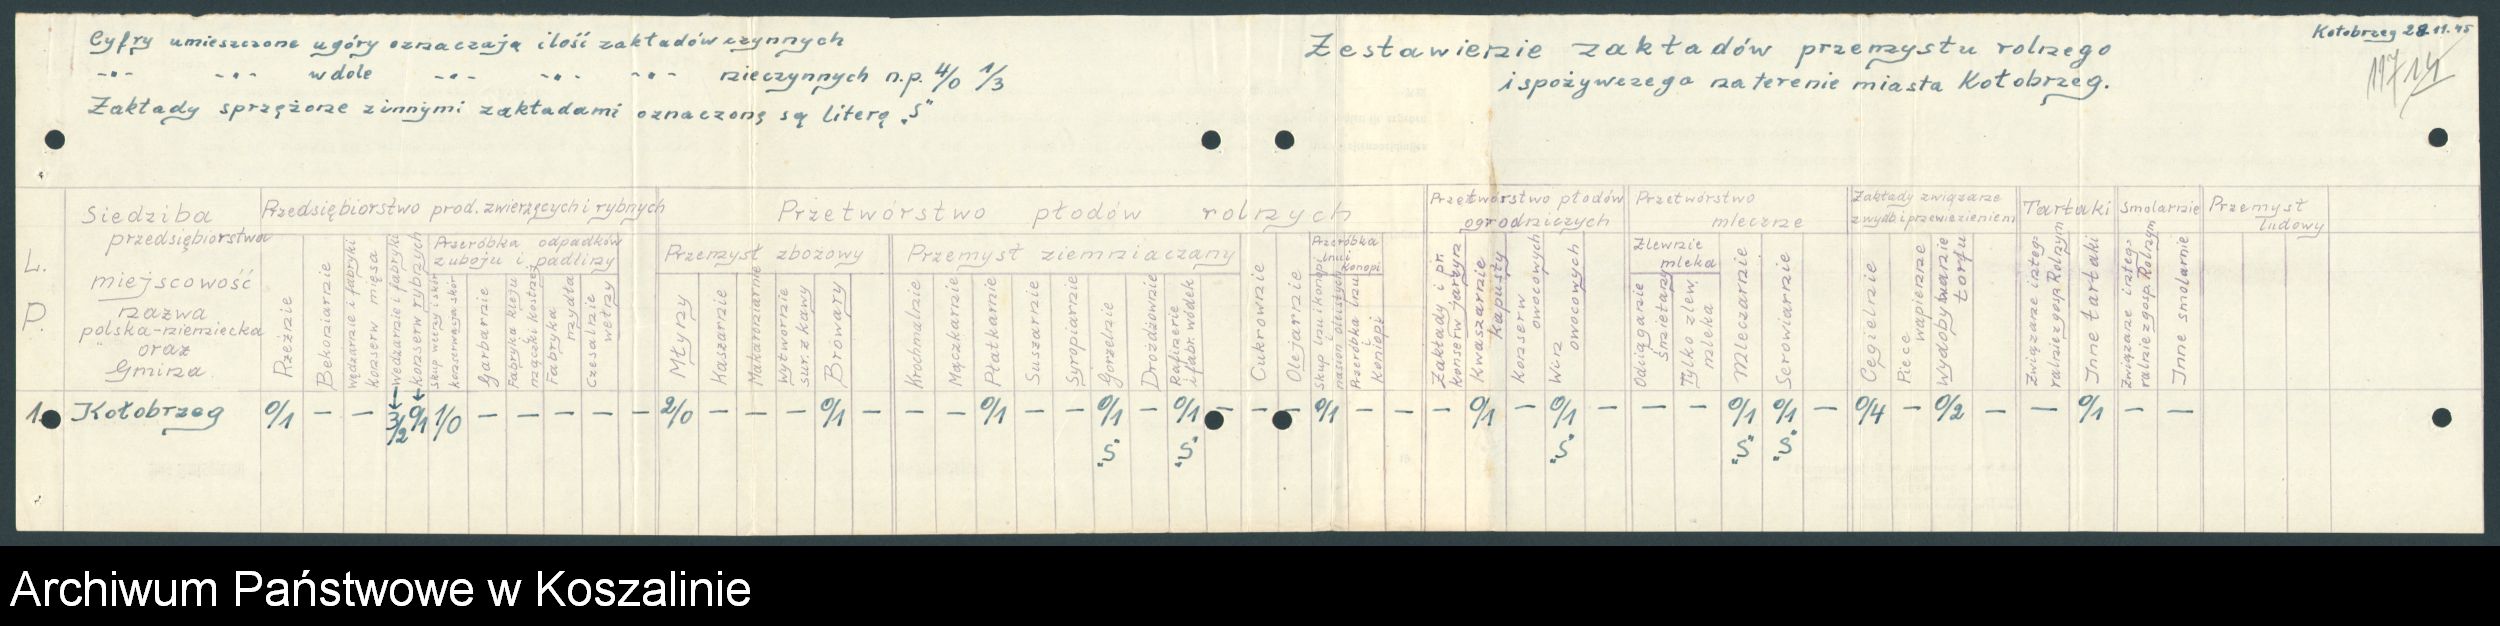 Cyfry umieszczone ugóry oznaczają ilość zakładów czynnych
-"- -"- w dole -"- -"- -"- nieczynnych n.p. 4/0 1/3
Zakłady sprzężone z innymi zakładami oznaczonę są literą „S"
Kołobrzeg 28.11.45
Zestawienie zakładów przemysłu rolnego
i spożywczego na terenie miasta Kołobrzeg.
L.P.
Siedziba
przedsiębiorstwa
miejscowość
nazwa
polska-niemiecka
oraz
Gmina
Przedsiębiorstwo prod. zwierzęcych i rybnych
Rzeźnie
Bekoniarnie
Wędzarnie i fabryki
konserw mięsa
Wedzarnie i fabryki
konserw rybnych
Przeróbka odpadków
z uboju i padliny
Skup wełny i skór
konserwacja skór
Garbarnie
Fabryka kleju
i mączki kostnej
Fabryka
mydła
Czesalnie
wełny
Przetwórstwo płodów rolnych
Przemysł zbożowy
Młyny
Kaszarnie
Makaroniarnie
Wytwornie
sur. z kawy
Browary
Przemysł ziemniaczany
Krochmalnie
Mączkarnie
Płatkarnie
Suszarnie
Syropiarnie
Gorzelnie
Drożdżownie
Rafinerie
i fabr. wódek
Cukrownie
Olejarnie
Przeróbka
lnu i
konopi
Skup lnu i konopi
i nasion oleistych
Przeróbka lnu
i
koniopi
Przetwórstwo płodów
ogrodniczych
Zakłady i pr.
konserw jarzyn
Kwaszarnie
Kapusty
Konserw
owocowych
Win
owocowych
Przetwórstwo
mleczne
Zlewnie
mleka
Odciąganie
śmietany
Tylko zlew.
mleka
Mleczarnie
Serowiarnie
Zakłady związane
z wydb. i przewiezieniem
Cegielnie
Piece
wapienne
Wydobywanie
torfu
Tartaki
Związane integ-
ralnie z gosp. Rolnym
Inne tartaki
Smolarnie
Związane integ-
ralnie z gosp. Rolnym
Inne smolarnie
Przemysł
ludowy
1. Kołobrzeg 0/1 – – 3/2 0/1 1/0 – – – – – 2/0 – – – 0/1 – – – 0/1 – – 0/1 „S" – 0/1 „S" – – – 0/1 – – – 0/1 – 0/1 „S" – – – 0/1 „S" 0/1 „S" – 0/4 – 0/2 – – 0/1 – –
Archiwum Państwowe w Koszalinie